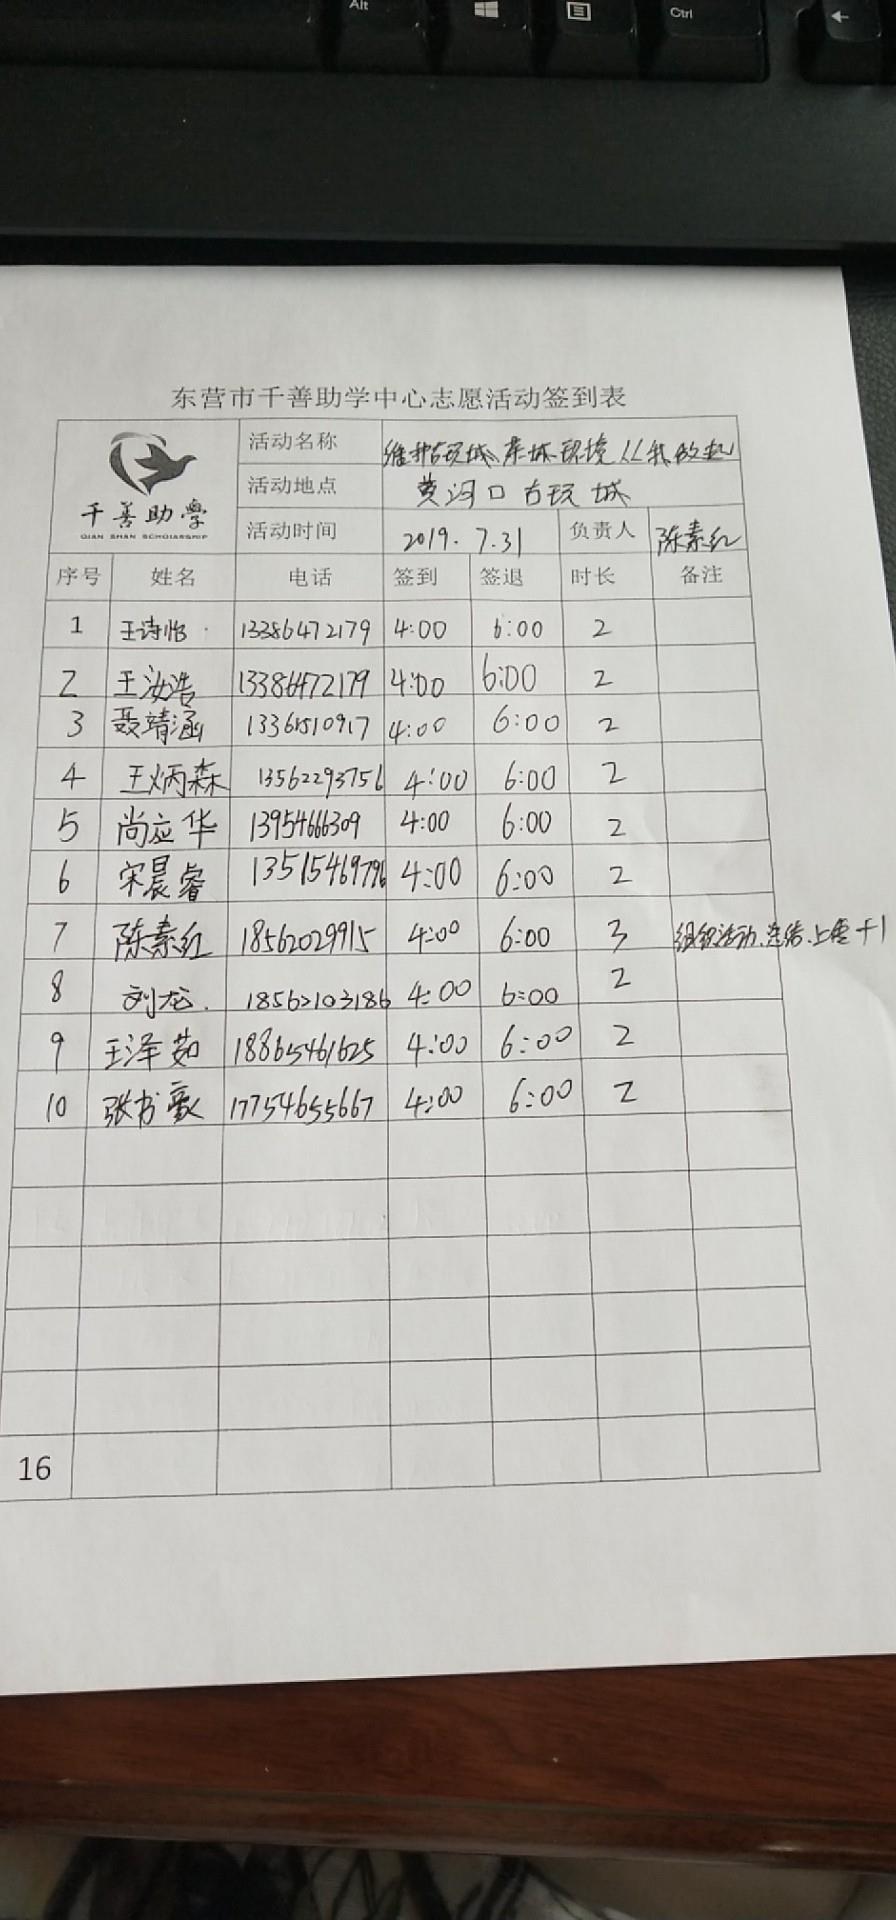 Alt
Ctrl
东营市千善助学中心志愿活动签到表
千善助学
QIAN SHAN SCHOLARSHIP
活动名称 维护古玩城、茶城环境从我做起
活动地点 黄河口古玩城
活动时间 2019.7.31 负责人 陈素红
序号 姓名 电话 签到 签退 时长 备注
1 王诗怡 13386472179 4:00 6:00 2
2 王汝浩 13386472179 4:00 6:00 2
3 聂靖涵 4:00 6:00 2
4 王炳森 13562293756 4:00 6:00 2
5 尚应华 13954666309 4:00 6:00 2
6 宋晨睿 13515469796 4:00 6:00 2
7 陈素红 18562029915 4:00 6:00 3 组织活动、总结、上传+1
8 刘龙. 18562103186 4:00 6:00 2
9 王泽茹 18865461625 4:00 6:00 2
10 张书豪 17754655667 4:00 6:00 2
16